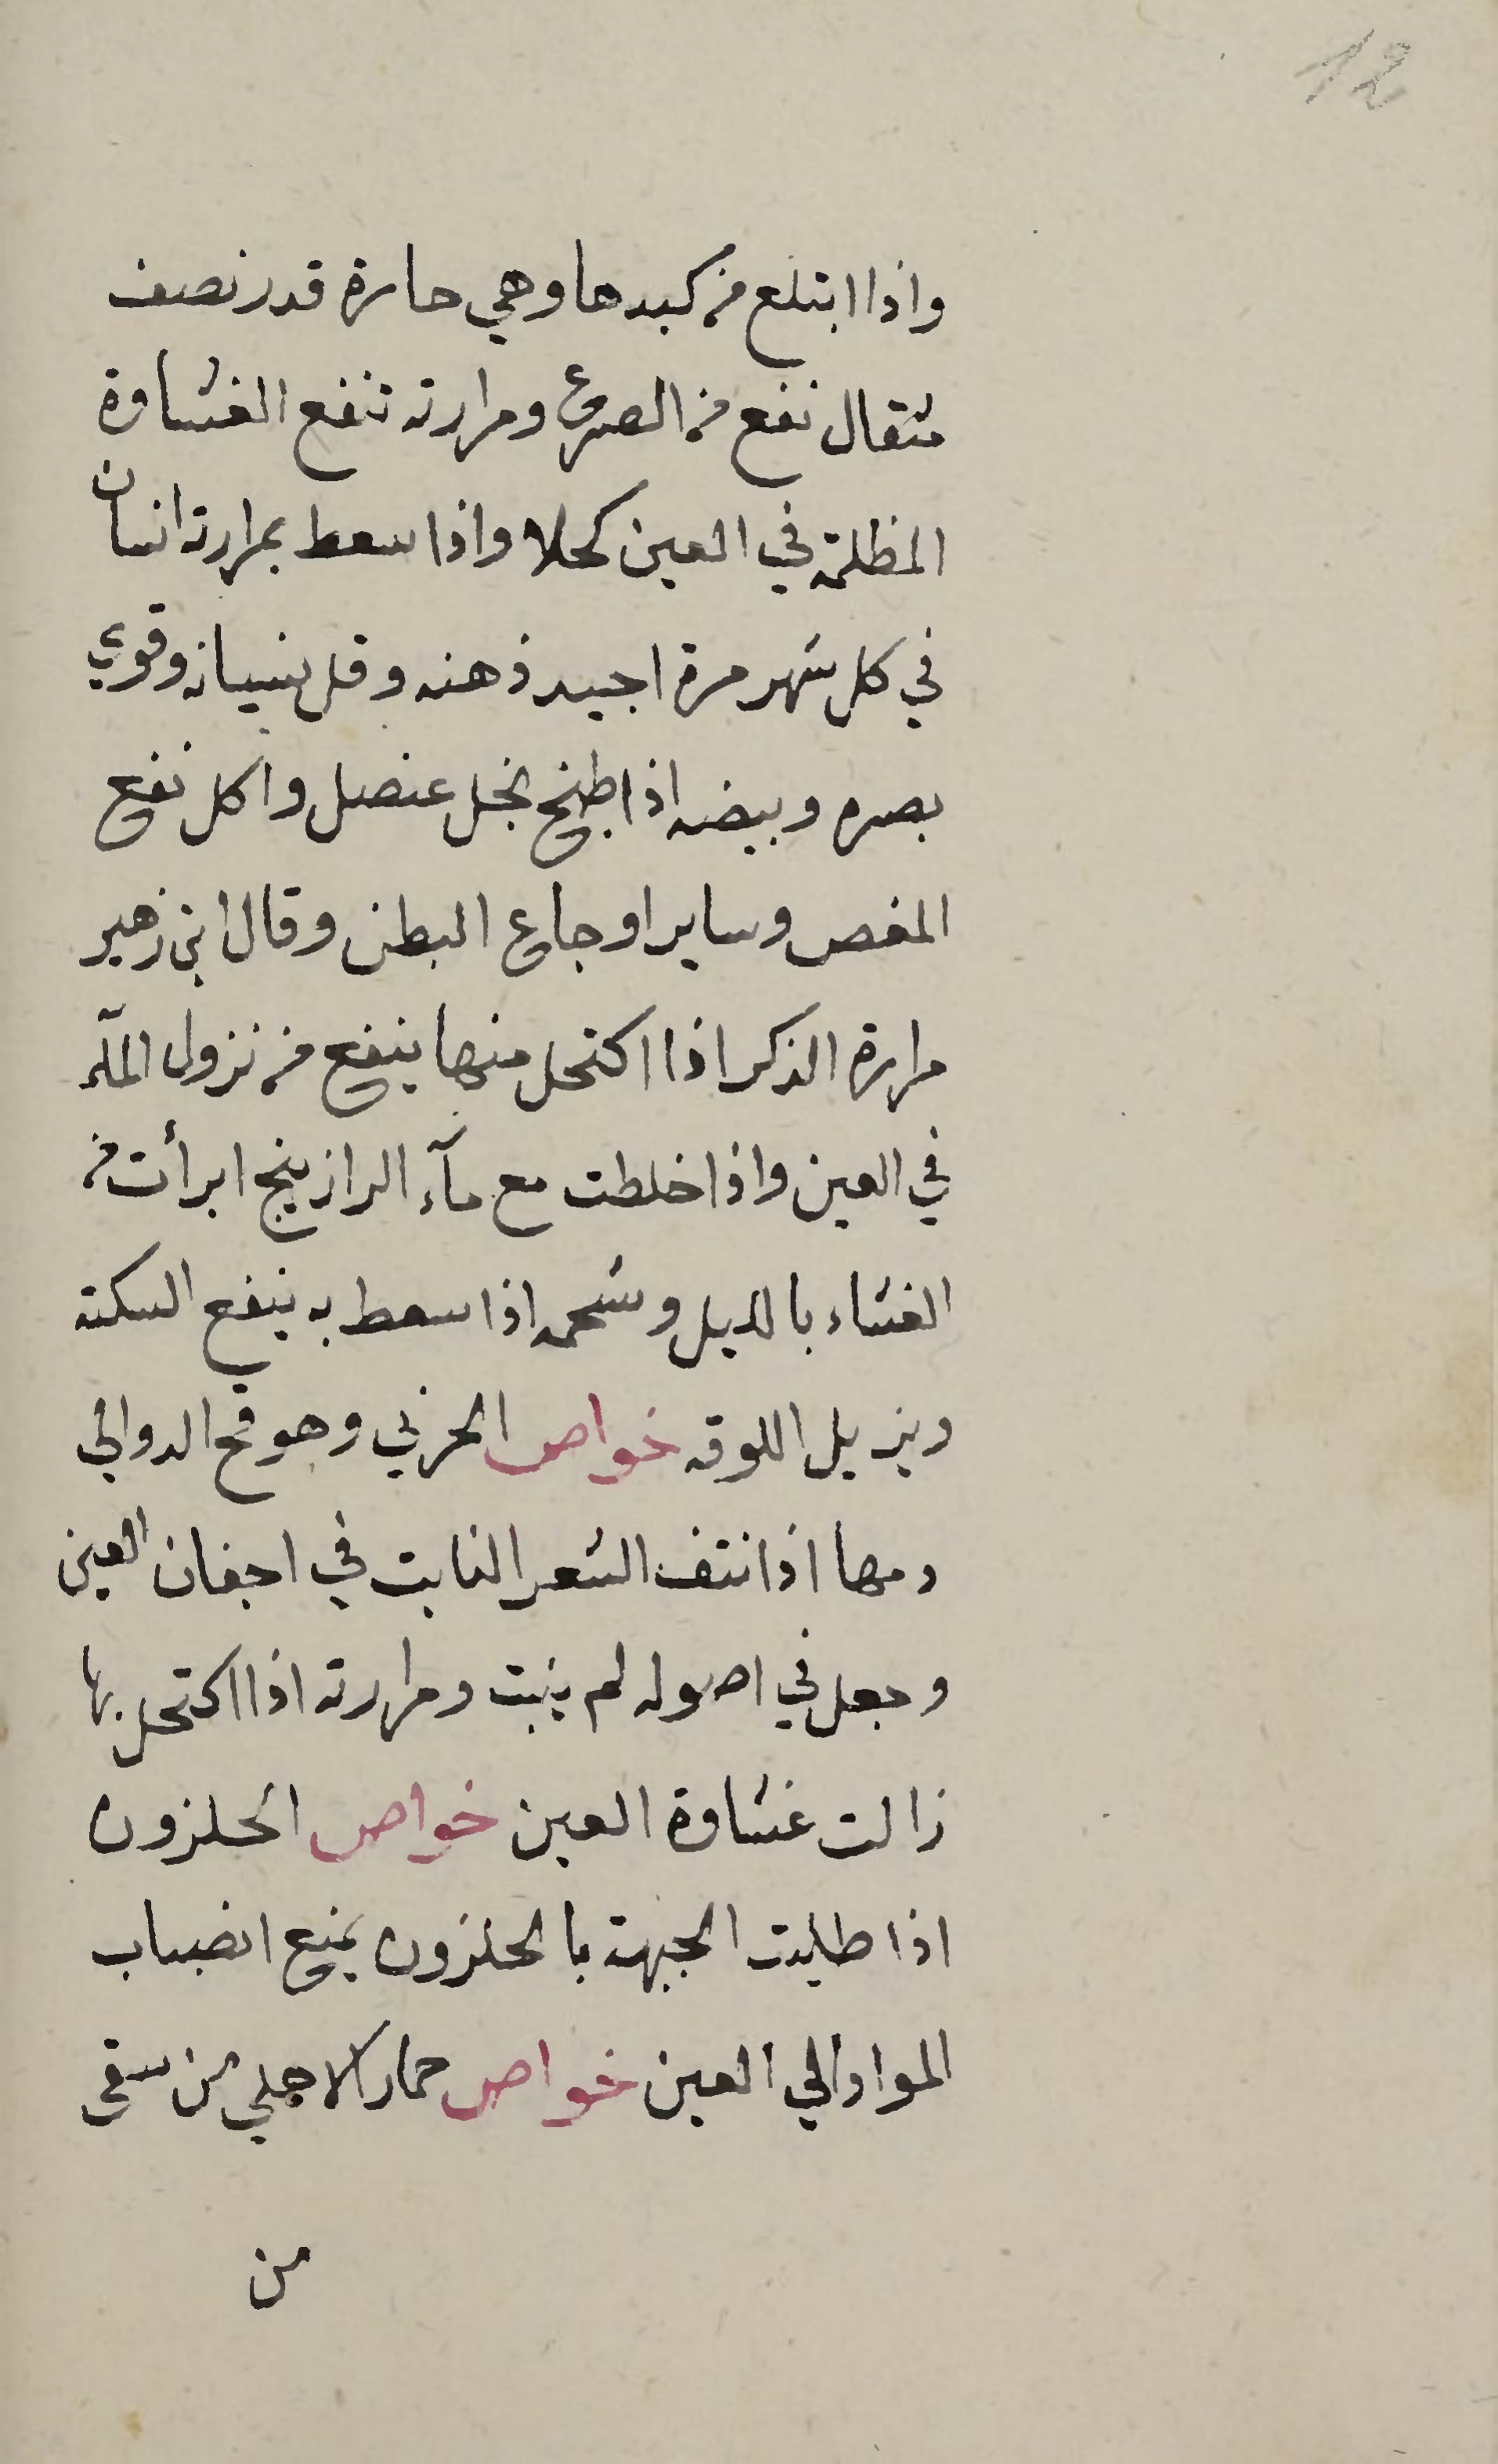 12
واذا ابتلع من كبدها وهي حارة قدر نصف
مثقال نفع من الصرع ومرارته تنفع الغشاوة
المظلمة في العين كحلا واذا سعط بمرارته انسان
في كل شهر مرة اجيد ذهنه وقل نسيانه وقوي
بصره وبيضه اذا طبخ بخل عنصل واكل نفع
المغص وساير اوجاع البطن وقال ابن زهير
مرارة الذكر اذا اكتحل منها ينفع من نزول المآء
في العين واذا خلطت مع مآء الرازينج ابرأت من
الغشاء بالليل وشحمه اذا سعط به ينفع السكتة
ويزيل اللوقه خواص الحزني وهو قح الدوالي
دمها اذا نتف الشعر النابت في اجفان العين
وجعل في اصوله لم ينبت ومرارته اذا اكتحل بها
زالت غشاوة العين خواص الحلزون
اذا طليت الجبهة بالحلزون يمنع انصباب
المواد الي العين خواص حمار الاهلي من سقي
من